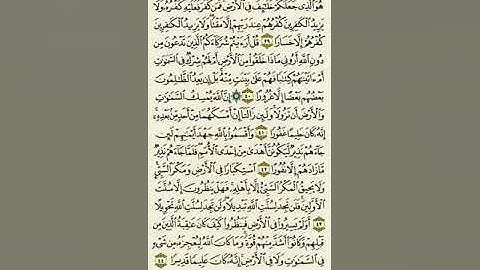 هُوَ الَّذِي جَعَلَكُمْ خَلَٰٓئِفَ فِي الْأَرْضِ فَمَن كَفَرَ فَعَلَيْهِ كُفْرُهُۥ وَلَا
يَزِيدُ الْكَٰفِرِينَ كُفْرُهُمْ عِندَ رَبِّهِمْ إِلَّا مَقْتًا وَلَا يَزِيدُ الْكَٰفِرِينَ
كُفْرُهُمْ إِلَّا خَسَارًا ٣٩ قُلْ أَرَءَيْتُمْ شُرَكَآءَكُمُ الَّذِينَ تَدْعُونَ مِن
دُونِ اللَّهِ أَرُونِي مَاذَا خَلَقُوا مِنَ الْأَرْضِ أَمْ لَهُمْ شِرْكٌ فِي السَّمَٰوَٰتِ
أَمْ ءَاتَيْنَٰهُمْ كِتَٰبًا فَهُمْ عَلَىٰ بَيِّنَتٍ مِّنْهُ بَلْ إِن يَعِدُ الظَّٰلِمُونَ
بَعْضُهُم بَعْضًا إِلَّا غُرُورًا ٤٠ إِنَّ اللَّهَ يُمْسِكُ السَّمَٰوَٰتِ
وَالْأَرْضَ أَن تَزُولَا وَلَئِن زَالَتَآ إِنْ أَمْسَكَهُمَا مِنْ أَحَدٍ مِّن بَعْدِهِۦٓ
إِنَّهُۥ كَانَ حَلِيمًا غَفُورًا ٤١ وَأَقْسَمُوا بِاللَّهِ جَهْدَ أَيْمَٰنِهِمْ لَئِن
جَآءَهُمْ نَذِيرٌ لَّيَكُونُنَّ أَهْدَىٰ مِنْ إِحْدَى الْأُمَمِ فَلَمَّا جَآءَهُمْ نَذِيرٌ
مَّا زَادَهُمْ إِلَّا نُفُورًا ٤٢ اسْتِكْبَارًا فِي الْأَرْضِ وَمَكْرَ السَّيِّئِ
وَلَا يَحِيقُ الْمَكْرُ السَّيِّئُ إِلَّا بِأَهْلِهِۦ فَهَلْ يَنظُرُونَ إِلَّا سُنَّتَ
الْأَوَّلِينَ فَلَن تَجِدَ لِسُنَّتِ اللَّهِ تَبْدِيلًا وَلَن تَجِدَ لِسُنَّتِ اللَّهِ تَحْوِيلًا
٤٣ أَوَلَمْ يَسِيرُوا فِي الْأَرْضِ فَيَنظُرُوا كَيْفَ كَانَ عَٰقِبَةُ الَّذِينَ مِن
قَبْلِهِمْ وَكَانُوٓا أَشَدَّ مِنْهُمْ قُوَّةً وَمَا كَانَ اللَّهُ لِيُعْجِزَهُۥ مِن شَيْءٍ
فِي السَّمَٰوَٰتِ وَلَا فِي الْأَرْضِ إِنَّهُۥ كَانَ عَلِيمًا قَدِيرًا ٤٤